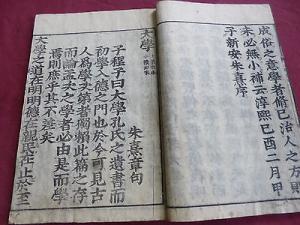 成俗之意學者脩己治人之方則
未必無小補云淳熙己酉二月甲
子新安朱熹序
大學
朱熹章句
子程子曰大學孔氏之遺書而
初學入德之門也於今可見古
人爲學次第者獨賴此篇之存
而論孟次之學者必由是而學
焉則庶乎其不差矣
大學之道在明明德在親民在止於至